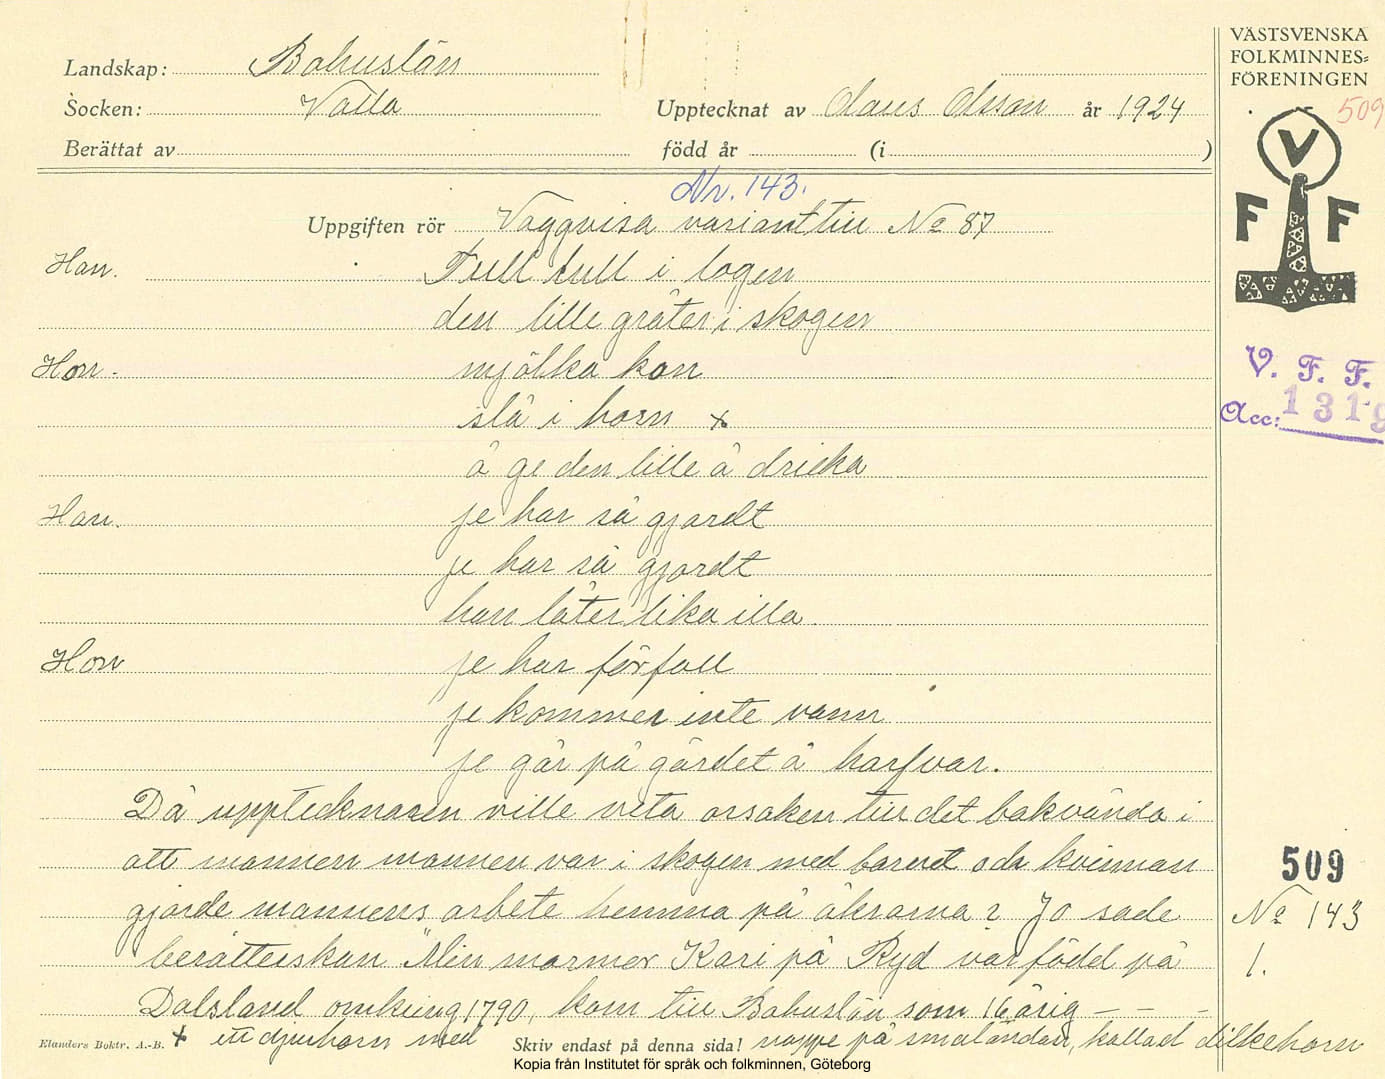 Landskap: Bohuslän
Socken: Valla
Upptecknat av Olaus Olsson år 1924
Berättat av
född år (i )
Nr. 143.
Uppgiften rör Vaggvisa variant till No 87
Han. Tull tull i logen
den lille gråter i skogen
Hon. mjölka kon
slå i horn x
å ge den lille å dricka
Han. je har så gjordt
je har så gjordt
han låter lika illa.
Hon je har förfall
je kommer inte vann
je går på gärdet å harfvar.
Då upptecknaren ville veta orsaken till det bakvända i
att mannen mannen var i skogen med barnet och kvinnan
gjorde mannens arbete hemma på åkrarna? Jo sade
berätterskan "Min mormor Kari på Ryd var född på
Dalsland omkring 1790, kom till Bohuslän som 16 årig - - -
x ett djurhorn med nappe på smaländan, kallad dilkehorn
Elanders Boktr. A.-B.
Skriv endast på denna sida!
Kopia från Institutet för språk och folkminnen, Göteborg
VÄSTSVENSKA
FOLKMINNES-
FÖRENINGEN
509
V
F F
V. F. F.
Acc: 1319
509
No 143
1.